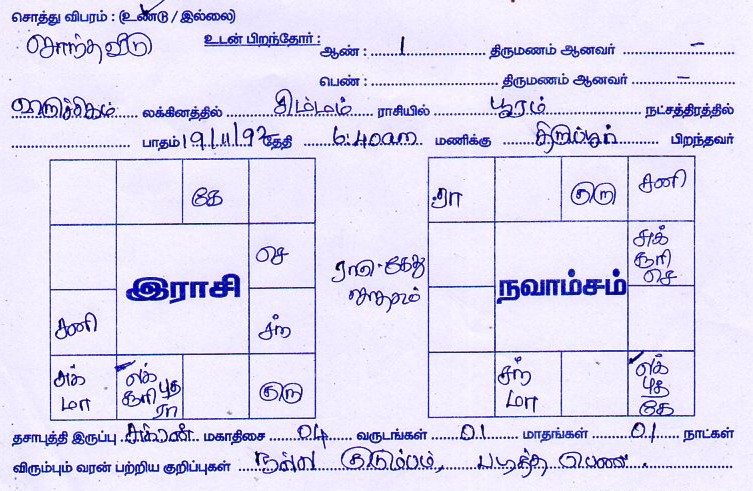 சொத்து விபரம் : (உண்டு / இல்லை)
சொந்த வீடு உடன் பிறந்தோர் : ஆண் : 1 திருமணம் ஆனவர் –
பெண் : திருமணம் ஆனவர் –
விருச்சிகம் லக்கினத்தில் சிம்மம் ராசியில் பூரம் நட்சத்திரத்தில்
பாதம் 19/11/92 தேதி 6:40am மணிக்கு திருப்பூர் பிறந்தவர்
கே
செ
சனி
சந்
சுக் மா
லக் சூரி புத ரா
குரு
இராசி
ராகு - கேது
ஜாதகம்
ரா
குரு
சனி
சுக் சூரி செ
சந் மா
லக் புத கே
நவாம்சம்
தசாபுத்தி இருப்பு சுக்கிரன் மகாதிசை 04 வருடங்கள் 01 மாதங்கள் 01 நாட்கள்
விரும்பும் வரன் பற்றிய குறிப்புகள் நல்ல குடும்பம், படித்த பெண்.